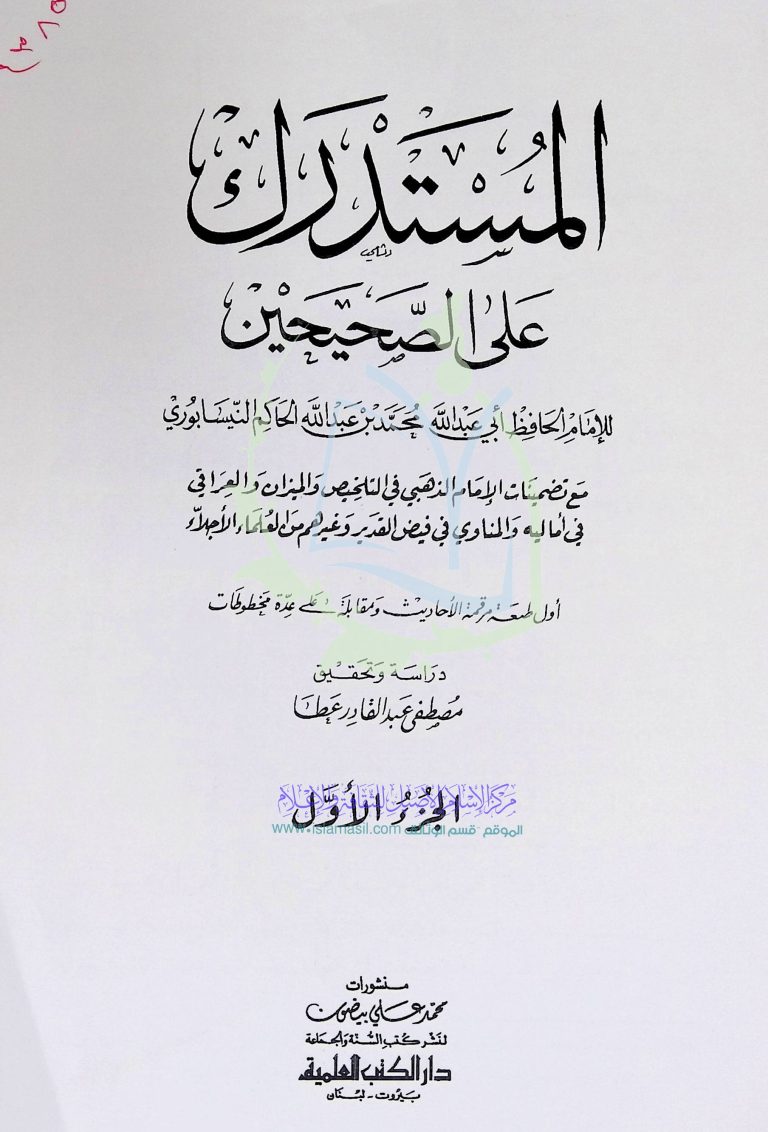 المُسْتَدْرَك
عَلَى الصَّحِيحَيْن
للإمَامِ الحَافِظْ أبي عَبْدالله مُحَمَّد بْن عَبْدالله الحَاكِم النّيسَابُوريْ
مَع تضمينَات الإمَام الذهبي في التلخيص والميزان والعِرَاقي
في أماليه والمناوي في فيض القدير وغيرهم من العُلَمَاء الأجلاّء
أول طبعَة مرقمة الأحاديث ومقابلة على عِدّة مخطوطَات
درَاسَة وَتحقيق
مصْطفى عَبد القادِر عَطَا
الجُزءُ الأوَّل
مركز الإسلام الأصيل للثقافة والإعلام
الموقع - قسم الوثائق www.islamasil.com
منشورات
محمّد عَلي بيضون
لنَشْر كُتبِ السُّنّة وَالجمَاعَة
دار الكتب العلمية
بَيرُوت - لبْنَان